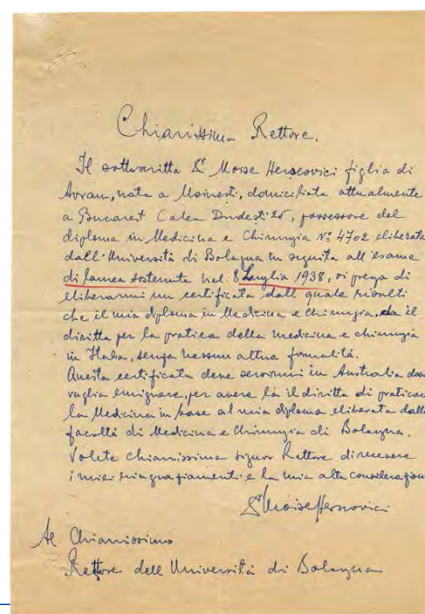 Chiarissimo Rettore.
Il sottoscritto Dr Moise Herscovici figlio di
Avram, nato a Moinesti, domiciliato attualmente
a Bucarest Calea Dudesti 25, possessore del
diploma in Medicina e Chirurgia No 4702 eliberato
dall'Università di Bologna in seguito all'esame
di laurea sostenuto nel 8 Luglio 1938, vi prega di
eliberarmi un certificato dal quale risulti
che il mio diploma in Medicina e Chirurgia, da il
diritto per la pratica della medicina e chirurgia
in Italia, senza nessun altra formalità.
Questo certificato deve servirmi in Australia dove
voglio emigrare, per avere là il diritto di praticare
la Medicina in base al mio diploma eliberato dalla
facoltà di Medicina e Chirurgia di Bologna.
Volete chiarissimo signor Rettore di ricevere
i miei ringraziamenti e la mia alta considerazione
Dr Moise Herscovici
Al Chiarissimo
Rettore dell'Università di Bologna